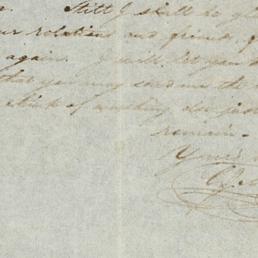 Still I shall be
our relations and friends
again. I will let you
that you may send me the
think of anything else just
remain
Yours